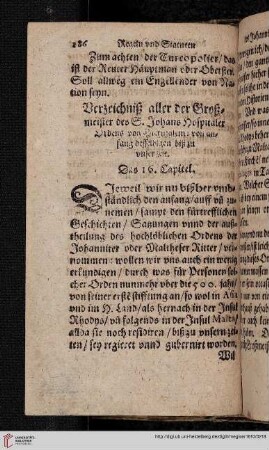 286 Regeln vnd Statuten
Zum achten der Turcopolier / das
ist der Reuter Häuptman oder Obersten.
Soll allweg ein Engelländer von Na-
tion seyn.
Verzeichniß aller der Groß-
meister des S. Johans Hospitaler
Ordens von Hierusalem: von an-
fang desselbigen biß zu
vnser zeit.
Das 16. Capitel.
Dieweil wir nu bißher vmb-
ständlich den anfang / auff vñ zu-
nemen / sampt den fürtrefflichen
Geschichten / Satzungen vnnd der auß-
theilung des hochlöblichen Ordens der
Johanniter oder Maltheser Ritter / ver-
nommen: wollen wir uns auch ein wenig
erkundigen / durch was für Personen sol-
cher Orden nunmehr vber die 500. jahr /
von seiner erstē stifftung an / so wol in Asia
vnd im H. Land / als hernach in der Insul
Rhodys / vñ folgends in der Insul Malta /
allda sie noch residiren / biß zu vnsern zei-
ten / sey regieret vnnd gubernirt worden.